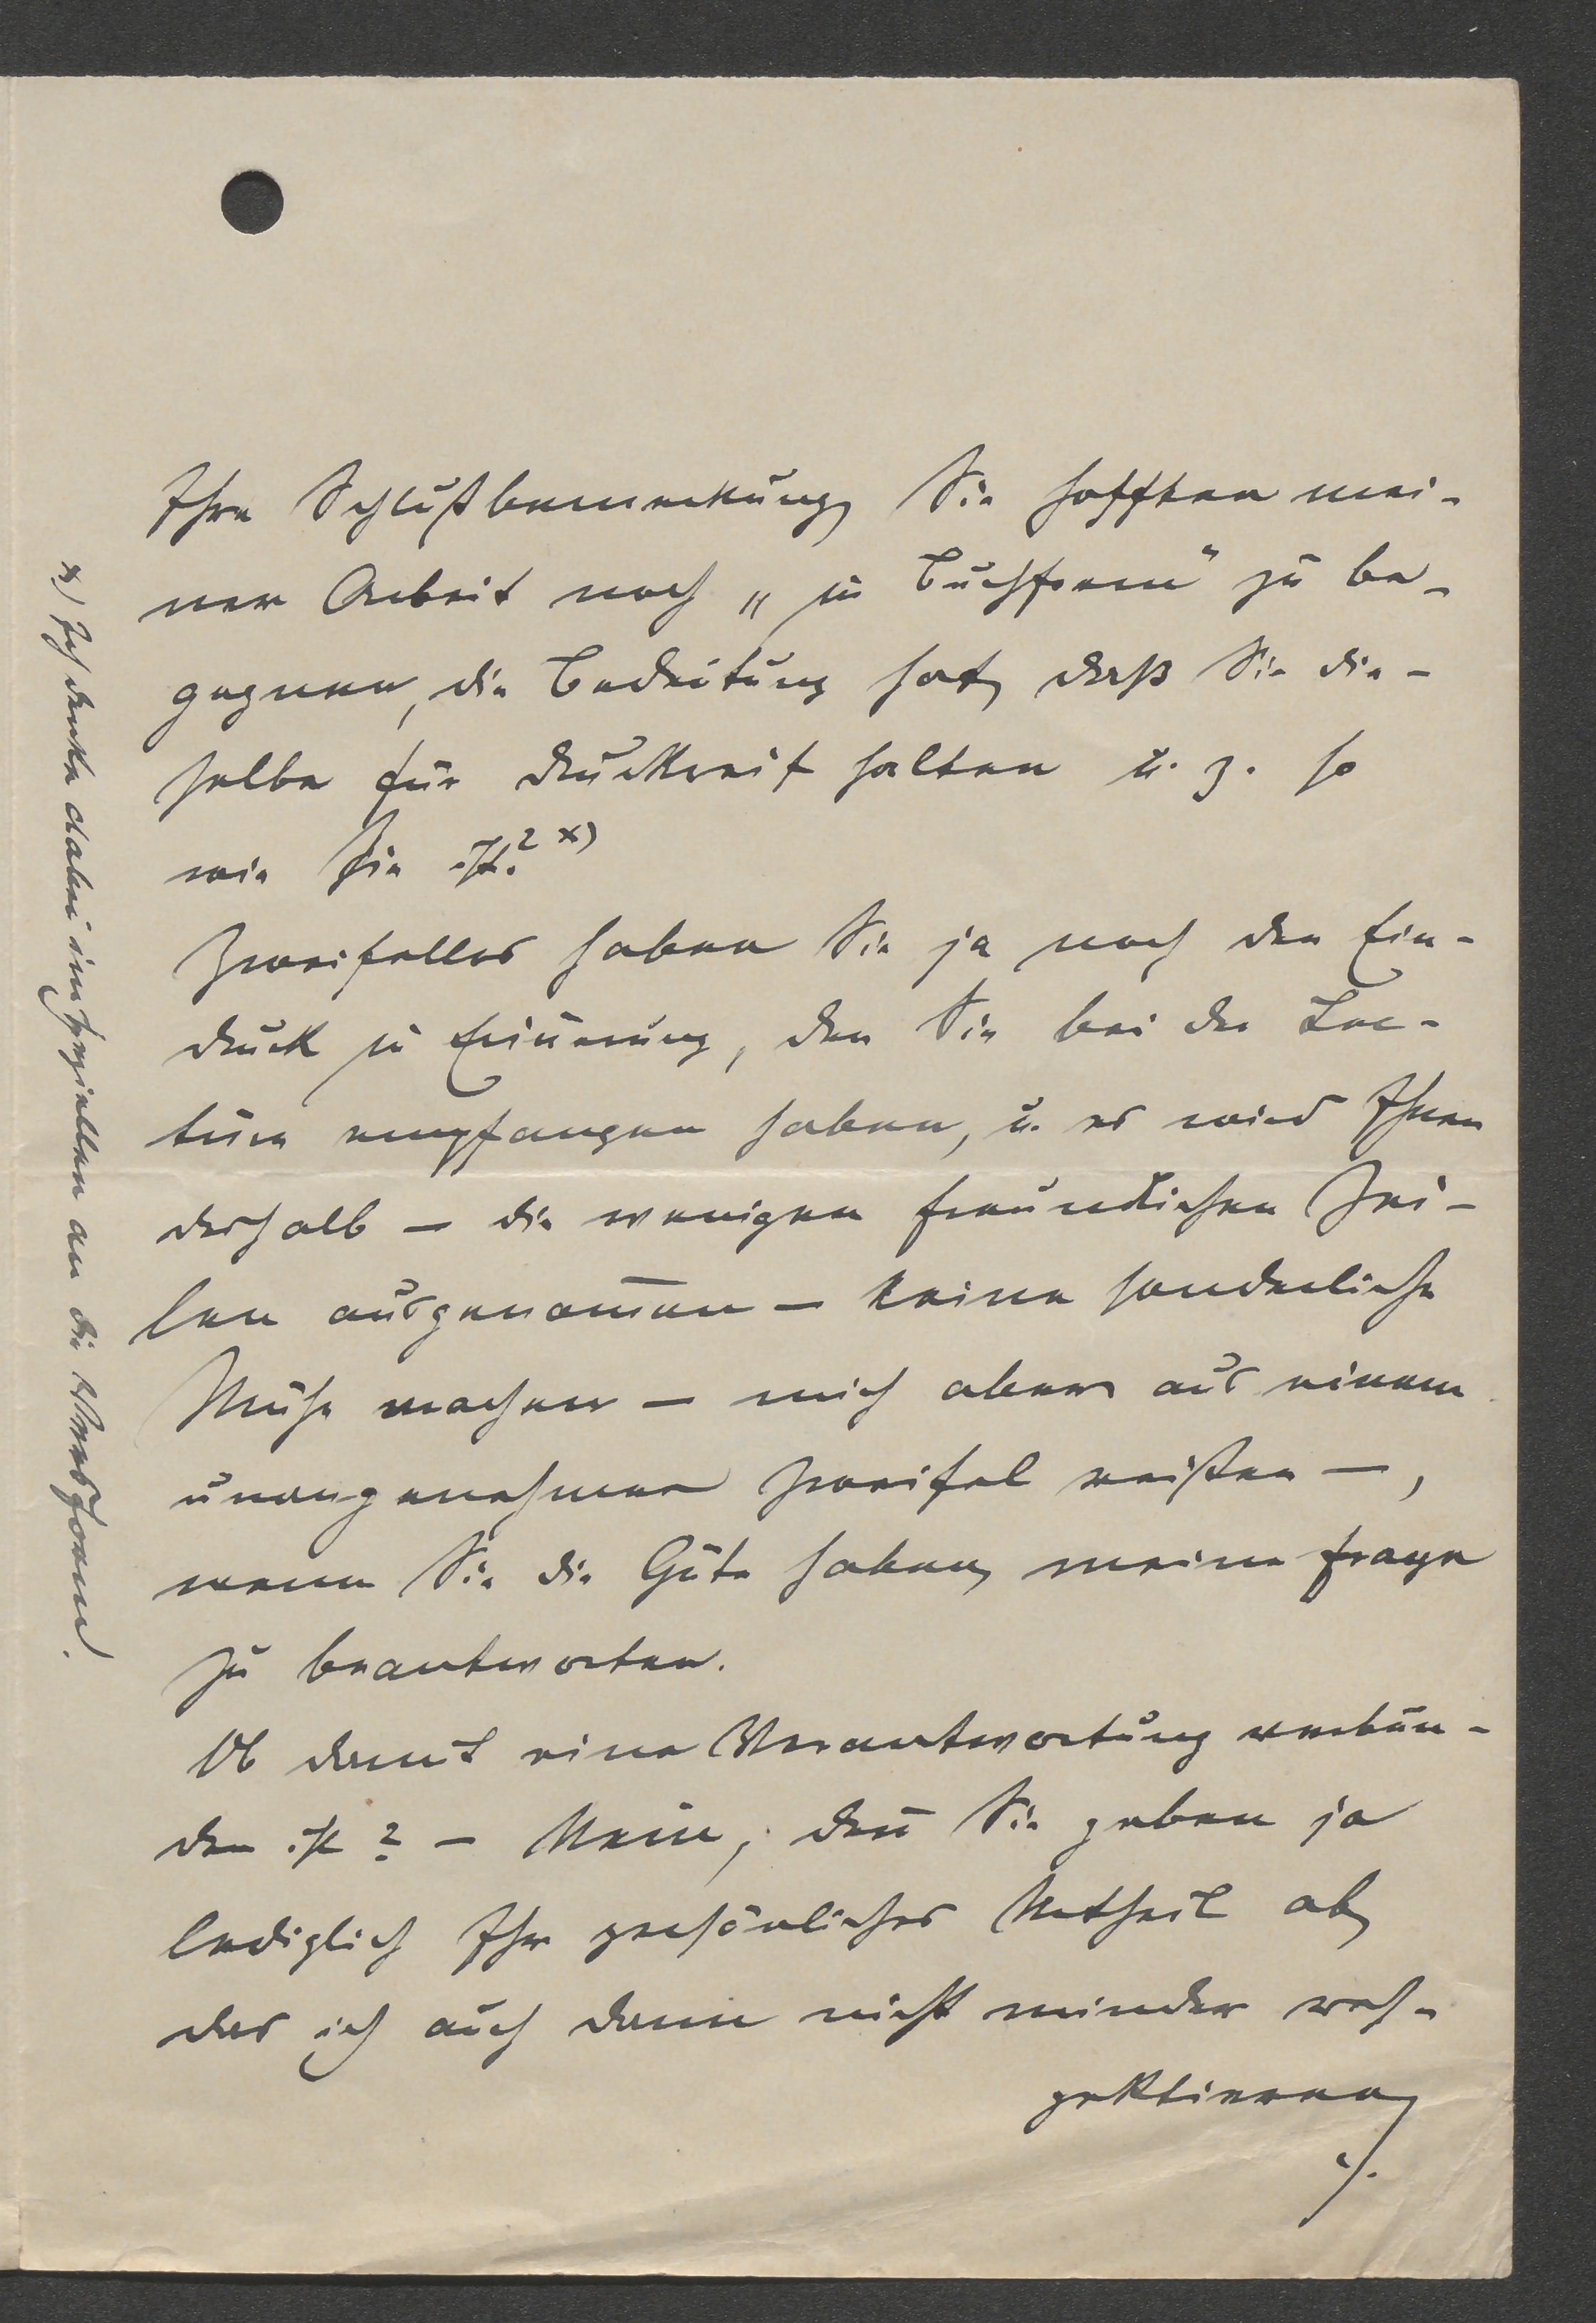 Ihre Schlußbemerkung, Sie hofften mei-
ner Arbeit noch „in Buchform" zu be-
gegnen, die Bedeutung hat, daß Sie die-
selbe für druckreif halten u. z. so
wie sie ist? x)
Zweifellos haben Sie ja noch den Ein-
druck in Erinnerung, den Sie bei der Lec-
türe empfangen haben, u. es wird Ihnen
deshalb – die wenigen freundlichen Zei-
len ausgenom̅en – keine sonderliche
Mühe machen – mich aber aus einem
unangenehmen Zweifel reißen –,
wenn Sie die Güte haben, meine Frage
zu beantworten.
Ob damit eine Verantwortung verbun-
den ist? – Nein, den̅ Sie geben ja
lediglich Ihr persönliches Urtheil ab,
das ich auch dann nicht minder res-
pektieren,
./.
x) Ich denke dabei in speziellen an die Versform.